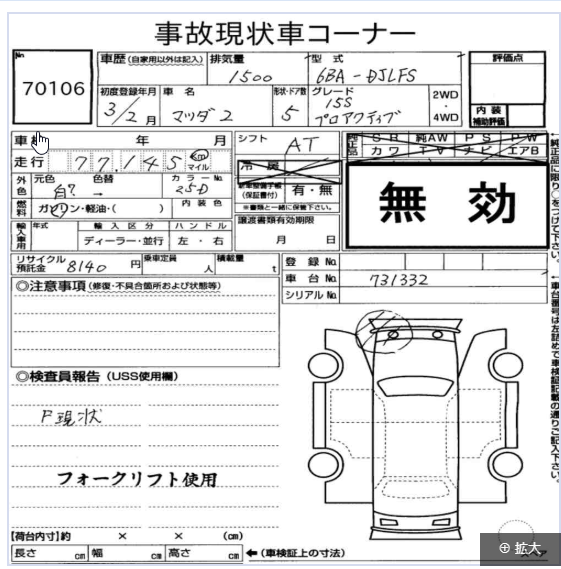 事故現状車コーナー
No.
70106
車歴(自家用以外は記入) 排気量 型式
1500 6BA-DJLFS
初度登録年月 車名 形状・ドア数 グレード 2WD・4WD
3/2月 マツダ2 5 15S プロアクティブ
評価点
内装補助評価
車検 年 月
シフト AT
走行 77,145 km マイル
冷房
純正品 SR 純AW PS PW
カワ TV ナビ エアB
外色 元色 色替 カラーNo.
→ 25D
新車整備手帳(保証書付) 有・無
※書類と一緒に保管下さい。
燃料 ガソリン・軽油・( ) 内装色
譲渡書類有効期限
月 日
無効
輸入車用 年式 輸入区分 ハンドル
ディーラー・並行 左・右
リサイクル預託金 8140円 乗車定員 人 積載量 t
登録No.
車台No. 731332
シリアルNo.
◎注意事項(修復・不具合箇所および状態等)
◎検査員報告(USS使用欄)
F現状
フォークリフト使用
【荷台内寸】約 × × (cm)
長さ cm 幅 cm 高さ cm ←(車検証上の寸法)
←純正品に限り○をつけて下さい。
←車台番号は左詰めで車検証記載の通りご記入下さい。
拡大